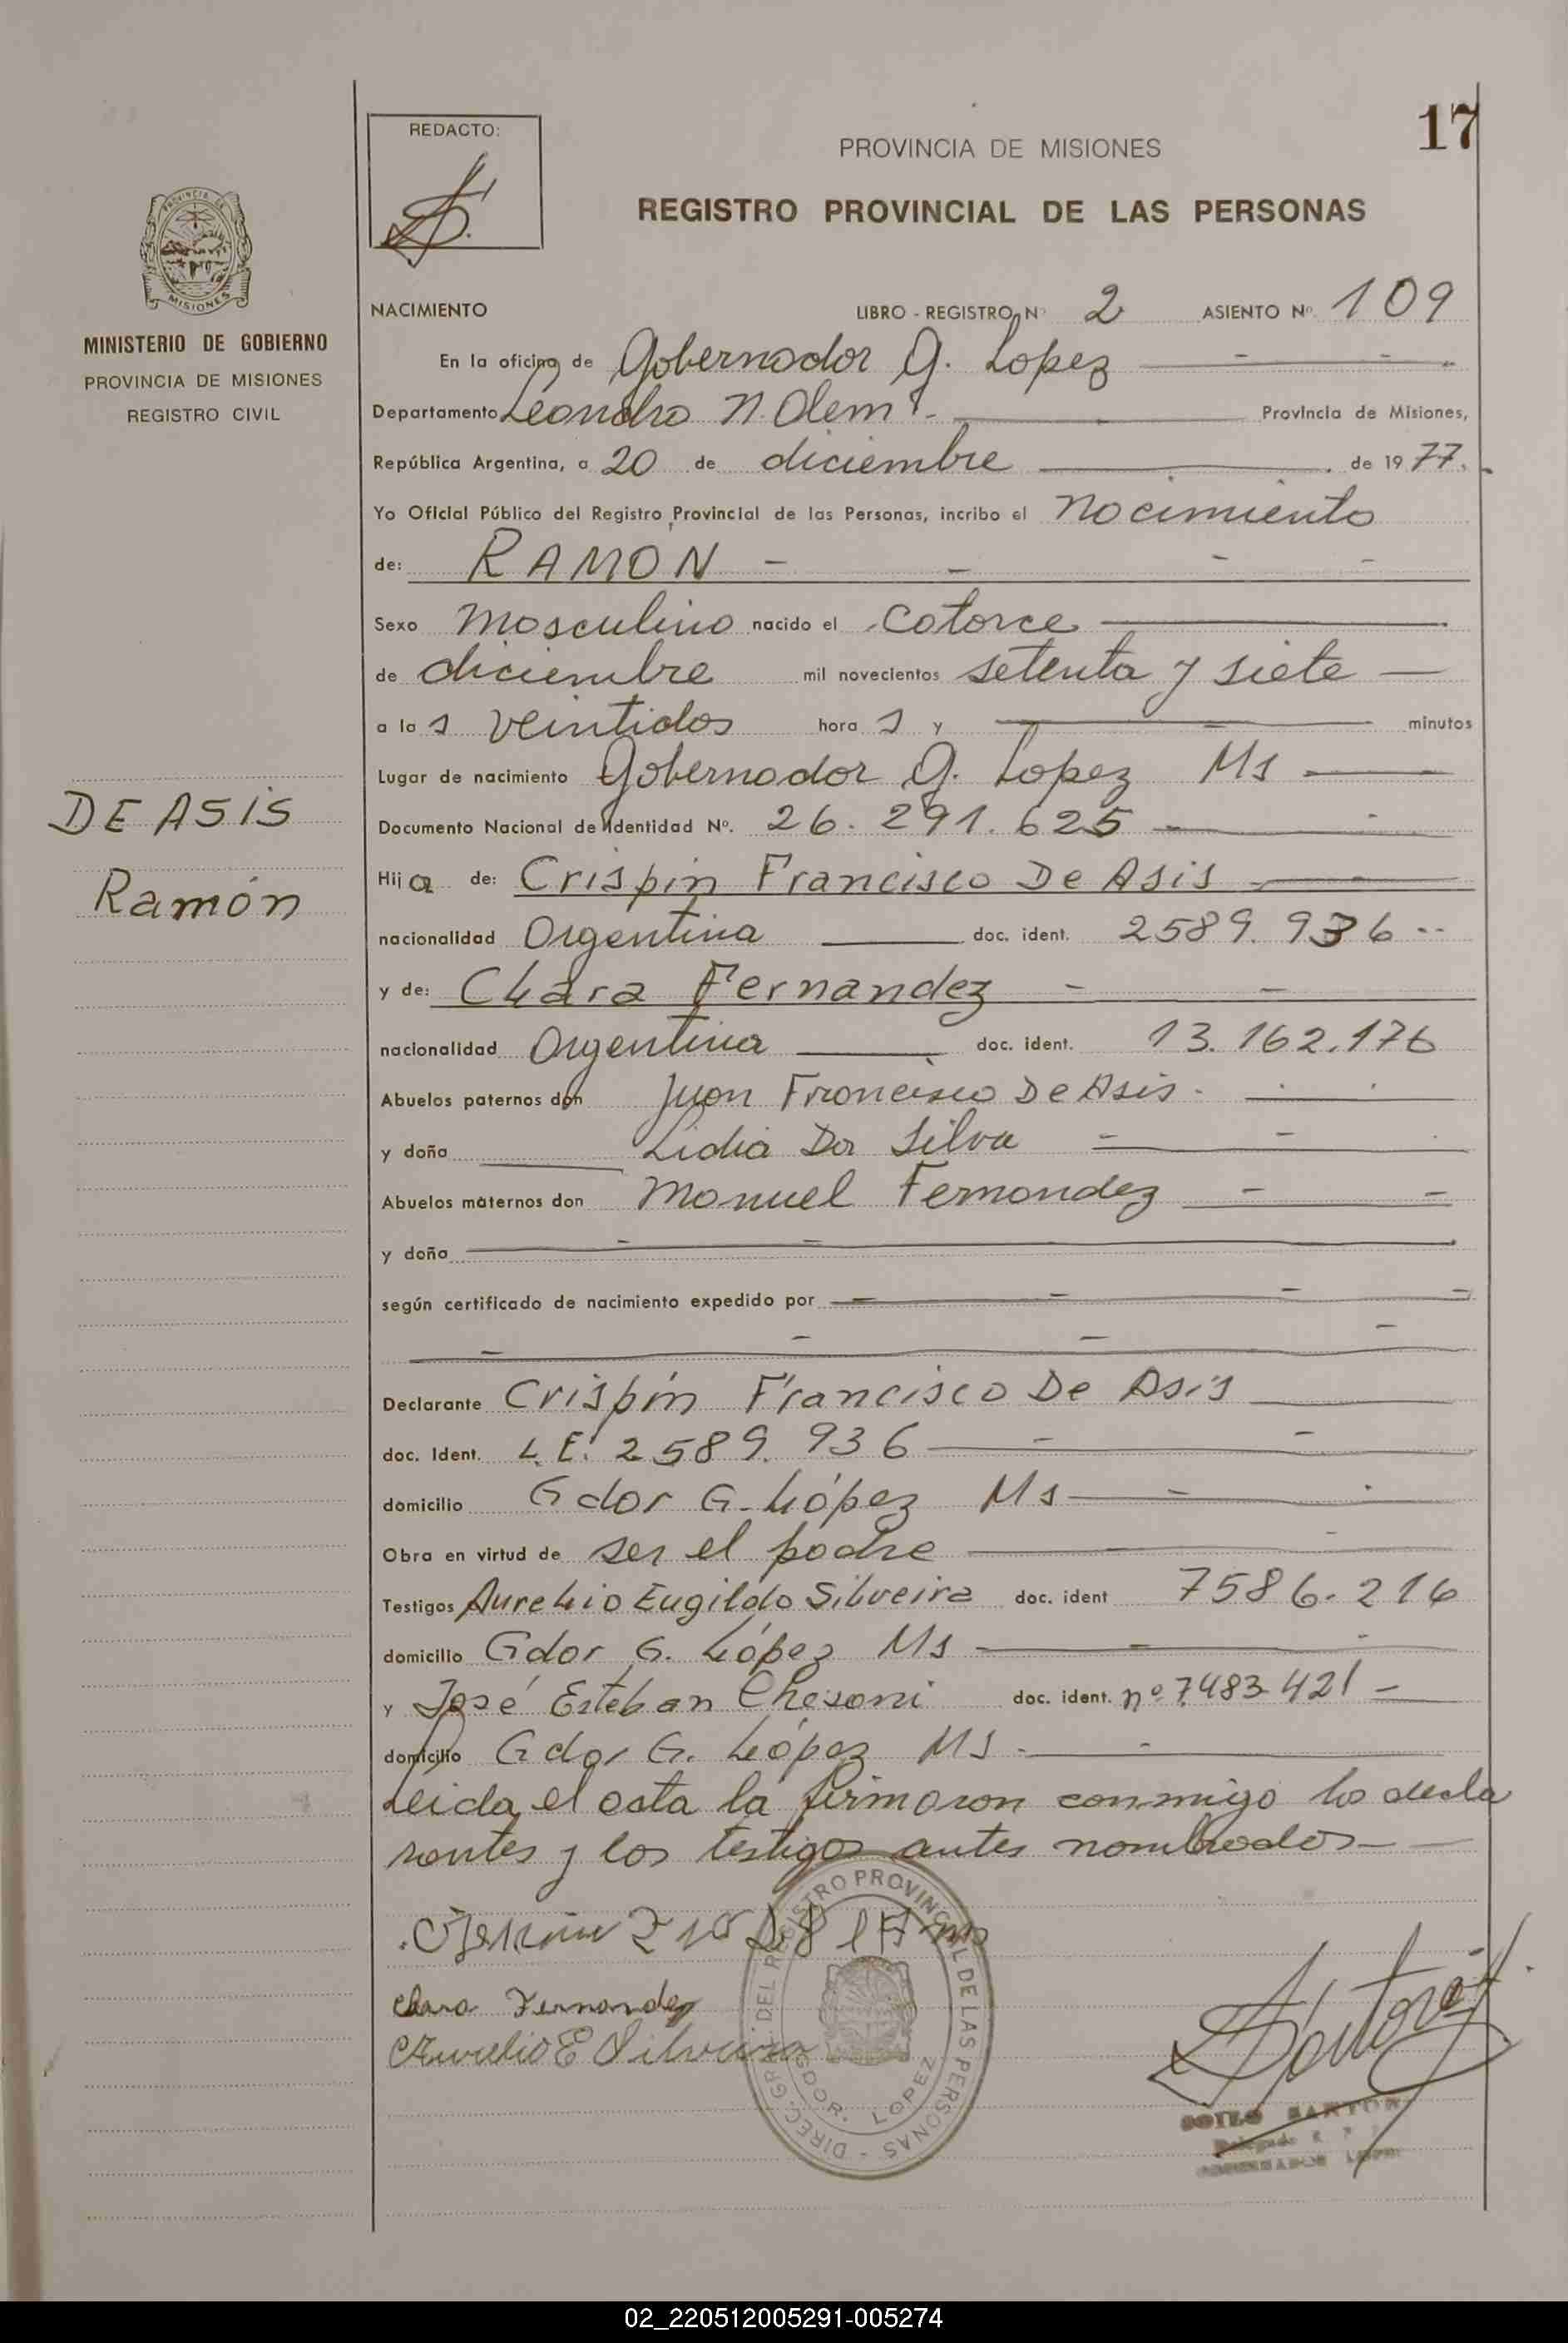 17
REDACTO:
PROVINCIA DE MISIONES
REGISTRO PROVINCIAL DE LAS PERSONAS
MISIONES
MINISTERIO DE GOBIERNO
PROVINCIA DE MISIONES
REGISTRO CIVIL
NACIMIENTO LIBRO - REGISTRO Nº 2 ASIENTO Nº 109
En la oficina de Gobernador G. Lopez
Departamento Leandro N. Alem Provincia de Misiones,
República Argentina, a 20 de diciembre de 1977.
Yo Oficial Público del Registro Provincial de las Personas, incribo el nacimiento
de: RAMON
Sexo masculino nacido el catorce
de diciembre mil novecientos setenta y siete
a las veintidos horas y minutos
Lugar de nacimiento Gobernador G. Lopez Ms
DE ASIS
Ramón
Documento Nacional de Identidad Nº. 26.291.625
Hija de: Crispin Francisco De Asis
nacionalidad Argentina doc. ident. 2589.936
y de: Clara Fernandez
nacionalidad Argentina doc. ident. 13.162.176
Abuelos paternos don Juan Francisco De Asis
y doña Lidia Da Silva
Abuelos maternos don Manuel Fernandez
y doña
según certificado de nacimiento expedido por
Declarante Crispín Francisco De Asis
doc. Ident. L.E. 2589.936
domicilio Gdor G. López Ms
Obra en virtud de ser el padre
Testigos Aurelio Eugildo Silveira doc. ident 7586.216
domicilio Gdor G. López Ms
y José Esteban doc. ident. nº 7.483.421
domicilio Gdor G. López Ms
Leida el acta la firmaron conmigo los decla
rantes y los testigos antes nombrados
Clara Fernandez
Aurelio E Silveira
DIREC. GRAL. DEL REGISTRO PROVINCIAL DE LAS PERSONAS
GDOR. LOPEZ
02_220512005291-005274